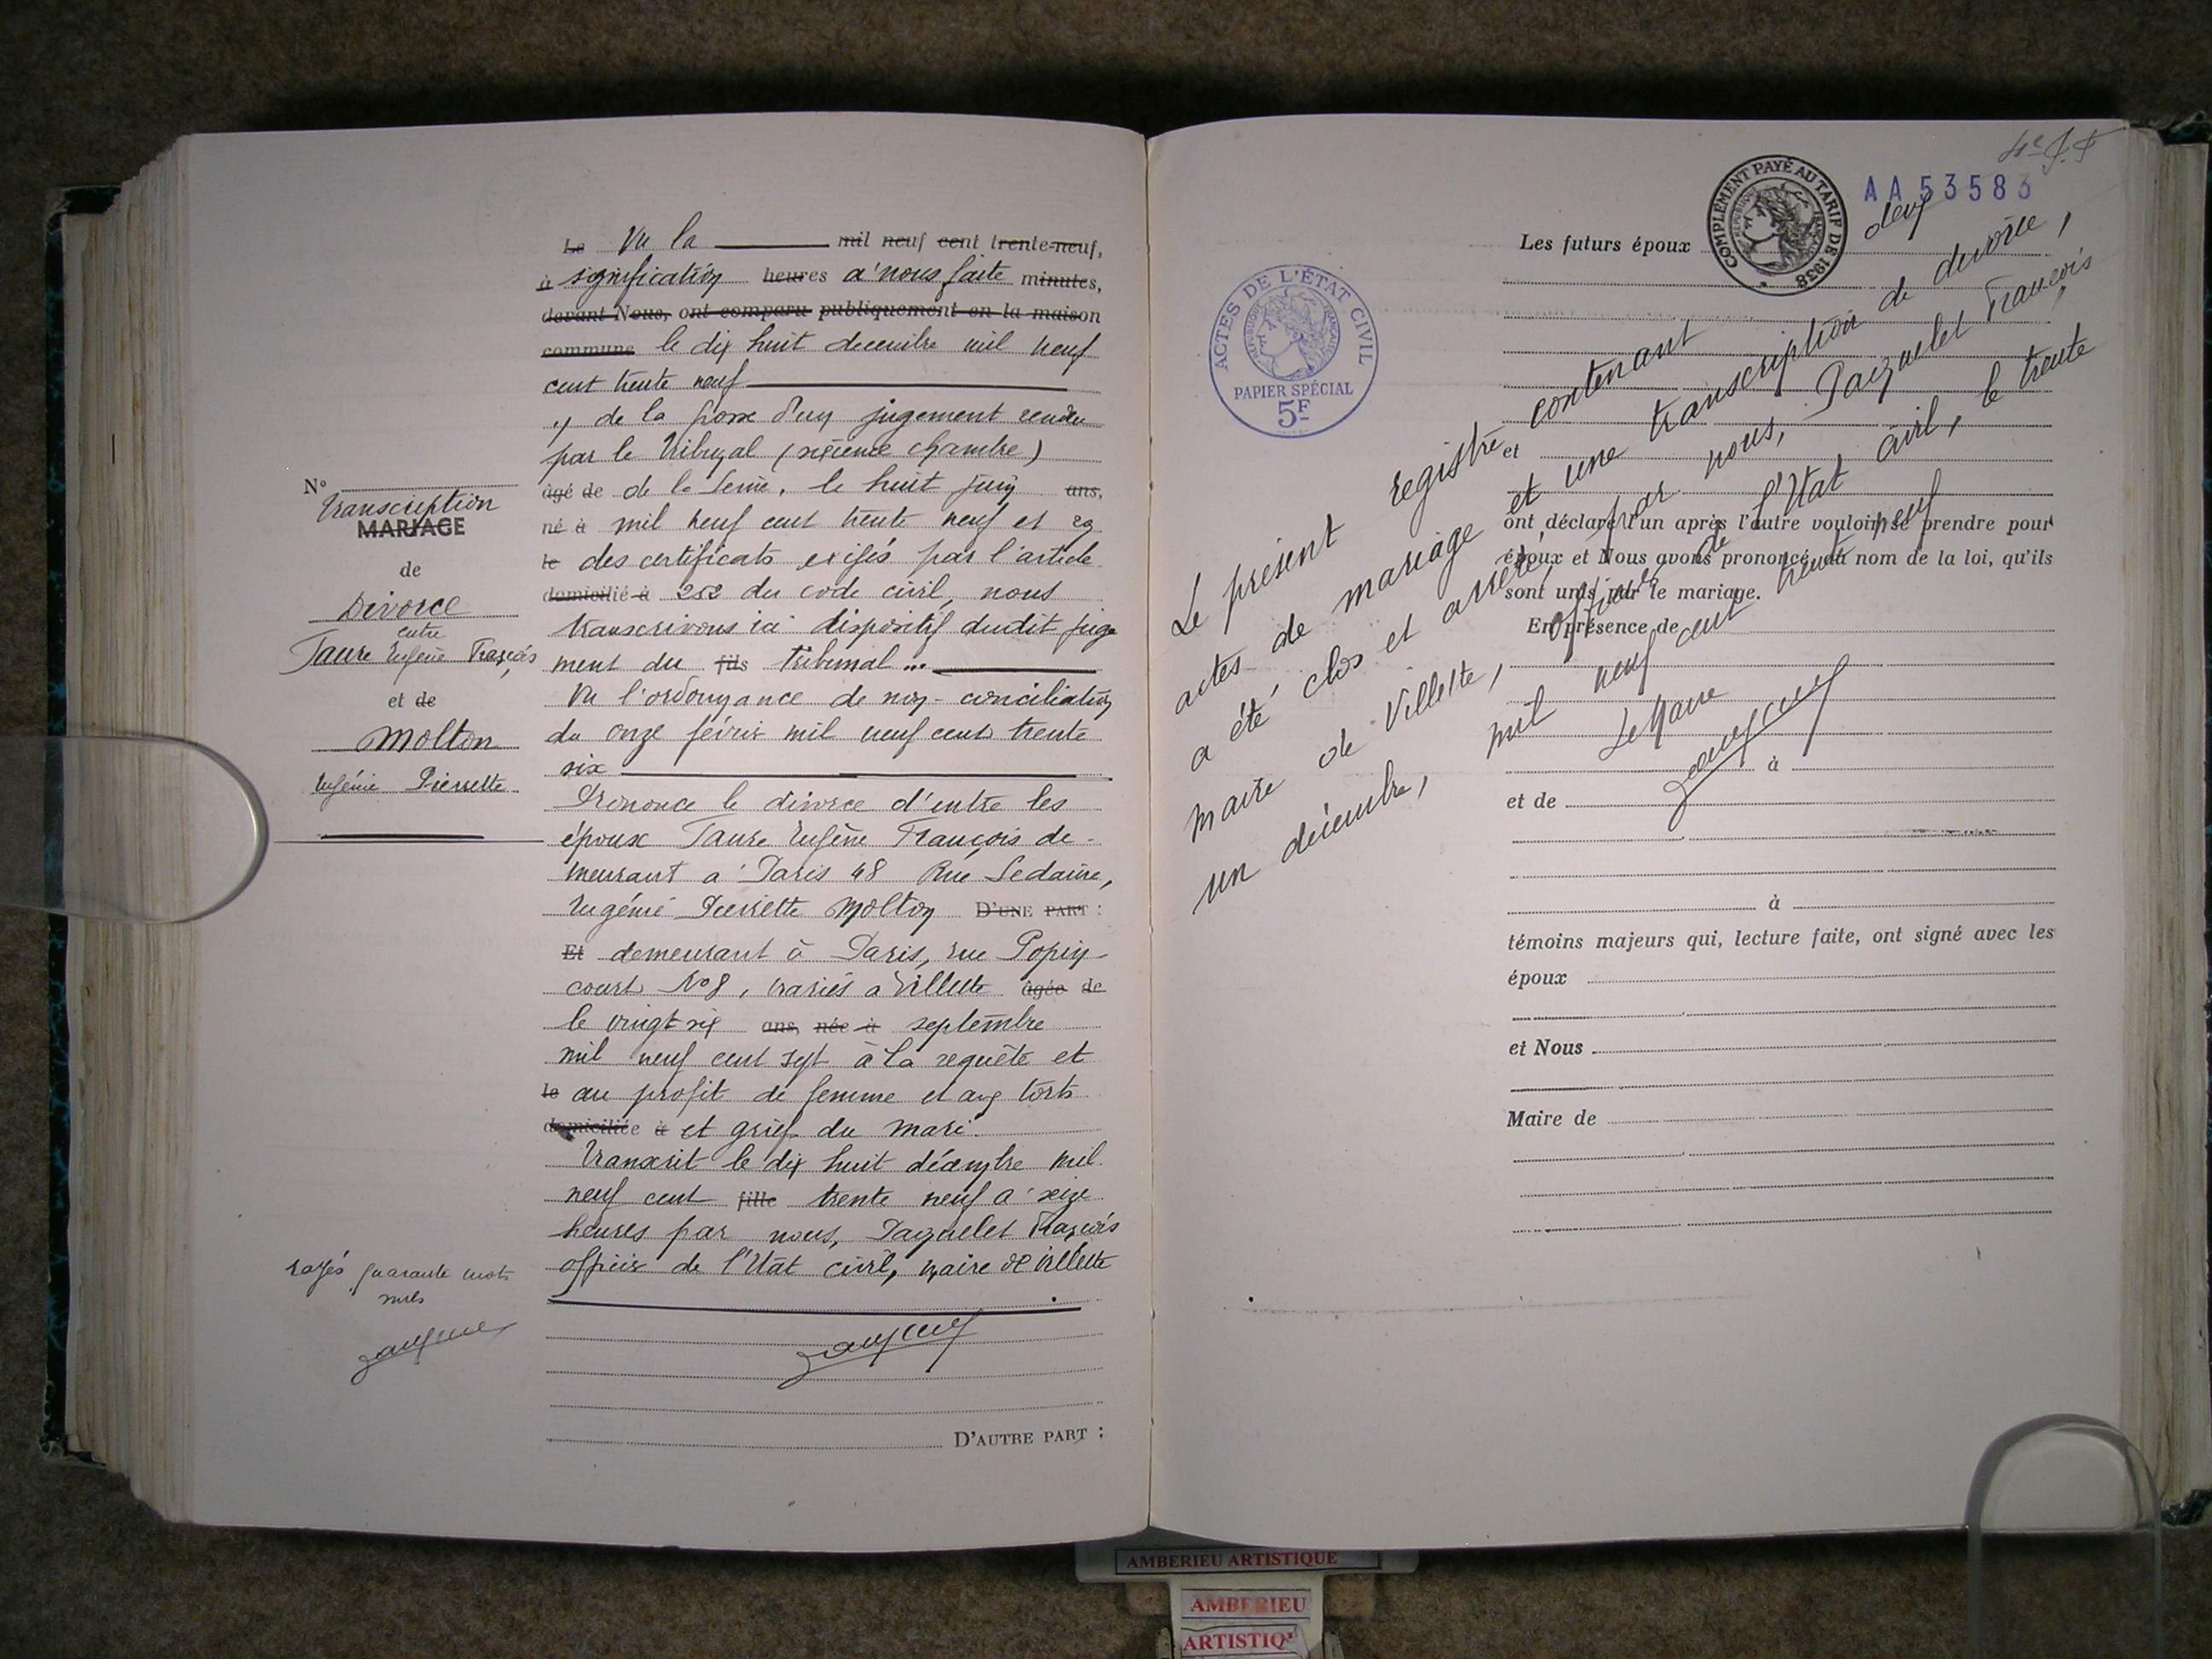 N°
Transcription
MARIAGE
de
Divorce
entre
Faure Eugène François,
et de
Molton
Eugénie Pierrette
rayés quarante mots
nuls
Le Vu la mil neuf cent trente-neuf,
à signification heures à nous faite minutes,
devant Nous, ont comparu publiquement en la maison
commune le dix huit décembre mil neuf
cent trente neuf
1) de la grosse d'un jugement rendu
par le Tribunal (sixième chambre)
âgé de de la Seine, le huit juin ans,
né à mil neuf cent trente neuf et 2g
le des certificats exigés par l'article
domicilié à 252 du code civil, nous
transcrivons ici dispositif dudit juge
ment du fils tribunal ...
Vu l'ordonnance de non-conciliation
du onze février mil neuf cent trente
six
Prononce le divorce d'entre les
époux Faure Eugène François de-
meurant à Paris 48 Rue Sedaine,
Eugénie Pierrette Molton D'UNE PART :
Et demeurant à Paris, rue Popin-
court N°8, mariés à Villette âgée de
le vingt six ans, née à septembre
mil neuf cent sept à la requête et
le au profit de femme et aux torts
domiciliée à et grief du mari.
Transcrit le dix huit décembre mil
neuf cent fille trente neuf à seize
heures par nous, Pacquelet François
officier de l'Etat civil, maire de Villette
D'AUTRE PART :
AA 53583
COMPLÉMENT PAYÉ AU TARIF DE 1938
ACTES DE L'ÉTAT CIVIL
RÉPUBLIQUE FRANÇAISE
PAPIER SPÉCIAL
5F
Les futurs époux
et
ont déclaré l'un après l'autre vouloir se prendre pour
époux et Nous avons prononcé, au nom de la loi, qu'ils
sont unis par le mariage.
En présence de
à
et de
à
témoins majeurs qui, lecture faite, ont signé avec les
époux
et Nous
Maire de
Le présent registre contenant deux
actes de mariage et une transcription de divorce,
a été clos et arrêté, par nous, Pacquelet François
maire de Villette, officier de l'Etat civil, le trente
un décembre, mil neuf cent trente neuf
Le Maire
AMBERIEU ARTISTIQUE
AMBERIEU
ARTISTIQ